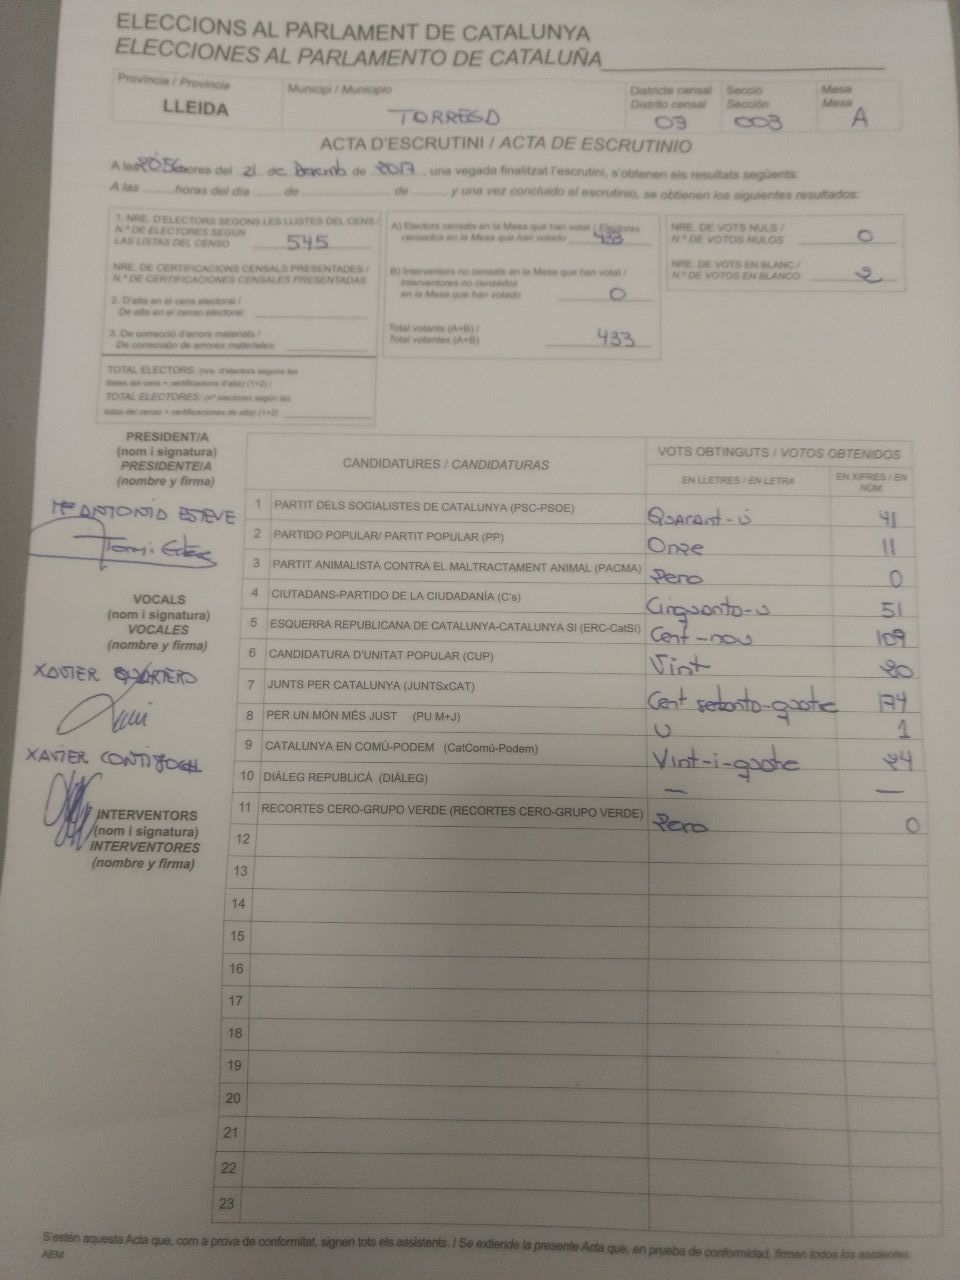 ELECCIONS AL PARLAMENT DE CATALUNYA
ELECCIONES AL PARLAMENTO DE CATALUÑA
Província / Provincia
LLEIDA
Municipi / Municipio
Districte censal
Distrito censal
03
Secció
Sección
003
Mesa
Mesa
A
ACTA D'ESCRUTINI / ACTA DE ESCRUTINIO
A les 20:56 hores del 21 de de 2017, una vegada finalitzat l'escrutini, s'obtenen els resultats següents:
A las ........ horas del día ..... de ............ de ........ y una vez concluido el escrutinio, se obtienen los siguientes resultados:
1. NRE. D'ELECTORS SEGONS LES LLISTES DEL CENS /
N.º DE ELECTORES SEGÚN
LAS LISTAS DEL CENSO 545
NRE. DE CERTIFICACIONS CENSALS PRESENTADES /
N.º DE CERTIFICACIONES CENSALES PRESENTADAS
2. D'alta en el cens electoral /
De alta en el censo electoral:
3. De correcció d'errors materials /
De corrección de errores materiales:
TOTAL ELECTORS: (nre. d'electors segons les
llistes del cens + certificacions d'alta) (1+2) /
TOTAL ELECTORES: (nº electores según las
listas del censo + certificaciones de alta) (1+2)
A) Electors censats en la Mesa que han votat / Electores
censados en la Mesa que han votado 433
B) Interventors no censats en la Mesa que han votat /
Interventores no censados
en la Mesa que han votado 0
Total votants (A+B) /
Total votantes (A+B) 433
NRE. DE VOTS NULS /
N.º DE VOTOS NULOS 0
NRE. DE VOTS EN BLANC /
N.º DE VOTOS EN BLANCO 2
PRESIDENT/A
(nom i signatura)
PRESIDENTE/A
(nombre y firma)
Mª ANTONIA ESTEVE
VOCALS
(nom i signatura)
VOCALES
(nombre y firma)
XAVIER
XAVIER
INTERVENTORS
(nom i signatura)
INTERVENTORES
(nombre y firma)
CANDIDATURES / CANDIDATURAS
VOTS OBTINGUTS / VOTOS OBTENIDOS
EN LLETRES / EN LETRA
EN XIFRES / EN NÚM.
1 PARTIT DELS SOCIALISTES DE CATALUNYA (PSC-PSOE) Quarant-u 41
2 PARTIDO POPULAR/ PARTIT POPULAR (PP) Onze 11
3 PARTIT ANIMALISTA CONTRA EL MALTRACTAMENT ANIMAL (PACMA) Zero 0
4 CIUTADANS-PARTIDO DE LA CIUDADANÍA (C's) Cinquanta-u 51
5 ESQUERRA REPUBLICANA DE CATALUNYA-CATALUNYA SÍ (ERC-CatSí) Cent-nou 109
6 CANDIDATURA D'UNITAT POPULAR (CUP) Vint 20
7 JUNTS PER CATALUNYA (JUNTSxCAT) Cent setanta-quatre 174
8 PER UN MÓN MÉS JUST (PU M+J) U 1
9 CATALUNYA EN COMÚ-PODEM (CatComú-Podem) Vint-i-quatre 24
10 DIÀLEG REPUBLICÀ (DIÀLEG) — —
11 RECORTES CERO-GRUPO VERDE (RECORTES CERO-GRUPO VERDE) Zero 0
12
13
14
15
16
17
18
19
20
21
22
23
S'estén aquesta Acta que, com a prova de conformitat, signen tots els assistents. / Se extiende la presente Acta que, en prueba de conformidad, firman todos los asistentes.